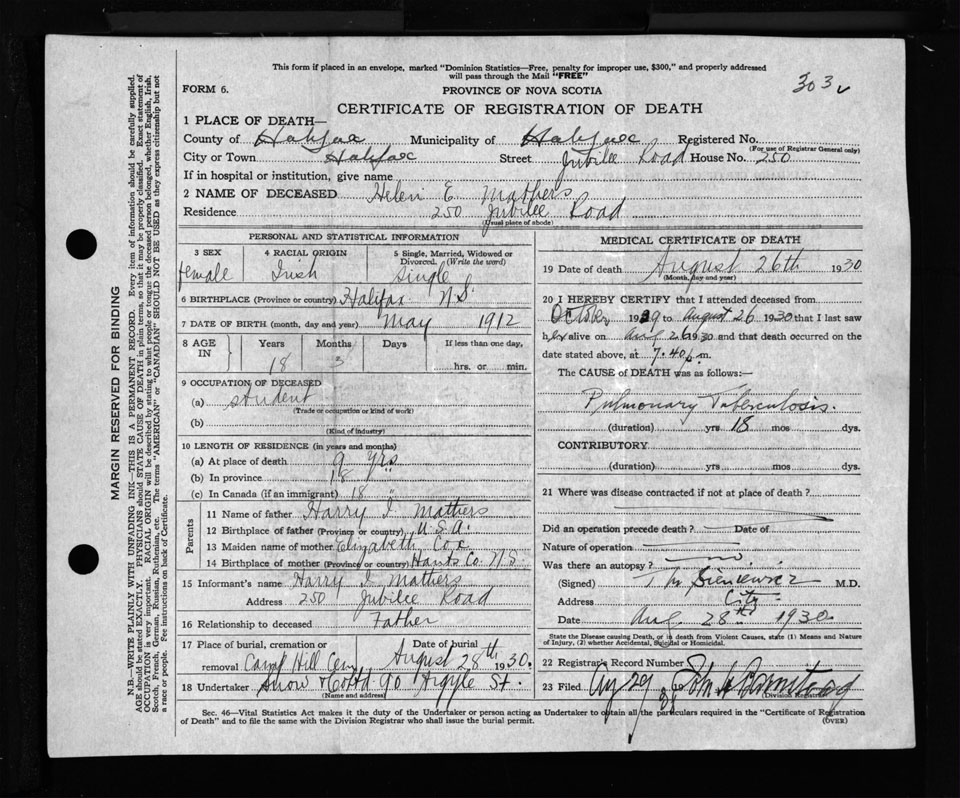 This form if placed in an envelope, marked "Dominion Statistics—Free, penalty for improper use, $300," and properly addressed
will pass through the Mail "FREE"
303
FORM 6.
PROVINCE OF NOVA SCOTIA
CERTIFICATE OF REGISTRATION OF DEATH
1 PLACE OF DEATH—
County of Halifax Municipality of Halifax Registered No.
(For use of Registrar General only)
City or Town Halifax Street Jubilee Road House No. 250
If in hospital or institution, give name
2 NAME OF DECEASED Helen E. Mathers
Residence 250 Jubilee Road
(Usual place of abode)
PERSONAL AND STATISTICAL INFORMATION
3 SEX 4 RACIAL ORIGIN 5 Single, Married, Widowed or
Divorced. (Write the word)
female Irish Single
6 BIRTHPLACE (Province or country) Halifax N.S.
7 DATE OF BIRTH (month, day and year) May 1912
8 AGE IN Years Months Days If less than one day,
18 3 hrs. or min.
9 OCCUPATION OF DECEASED
(a) student
(Trade or occupation or kind of work)
(b)
(Kind of industry)
10 LENGTH OF RESIDENCE (in years and months)
(a) At place of death 9 yrs
(b) In province 18 "
(c) In Canada (if an immigrant) 18 "
Parents
11 Name of father Harry I. Mathers
12 Birthplace of father (Province or country) U.S.A.
13 Maiden name of mother Elizabeth Cox
14 Birthplace of mother (Province or country) Hants Co. N.S.
15 Informant's name Harry I. Mathers
Address 250 Jubilee Road
16 Relationship to deceased Father
17 Place of burial, cremation or Date of burial
removal Camp Hill Cem August 28th 1930.
18 Undertaker Snow & Co Ltd 90 Argyle St.
(Name and address)
MEDICAL CERTIFICATE OF DEATH
19 Date of death August 26th 1930
(Month, day and year)
20 I HEREBY CERTIFY that I attended deceased from
October 1929 to August 26 1930 that I last saw
her alive on Aug 26 1930 and that death occurred on the
date stated above, at 7.40 p.m.
The CAUSE of DEATH was as follows:—
Pulmonary Tuberculosis.
(duration) yrs 18 mos dys.
CONTRIBUTORY
(duration) yrs mos dys.
21 Where was disease contracted if not at place of death?
Did an operation precede death? Date of
Nature of operation
Was there an autopsy? no
(Signed) T M Sieniewicz M.D.
Address City
Date Aug. 28th 1930.
State the Disease causing Death, or in death from Violent Causes, state (1) Means and Nature
of Injury, (2) whether Accidental, Suicidal or Homicidal.
22 Registrar's Record Number
23 Filed Aug 29 19
Sec. 46—Vital Statistics Act makes it the duty of the Undertaker or person acting as Undertaker to obtain all the particulars required in the "Certificate of Registration
of Death" and to file the same with the Division Registrar who shall issue the burial permit.
(OVER)
MARGIN RESERVED FOR BINDING
N.B.—WRITE PLAINLY WITH UNFADING INK—THIS IS A PERMANENT RECORD. Every item of information should be carefully supplied.
AGE should be stated EXACTLY. PHYSICIANS should STATE CAUSE OF DEATH in plain terms, so that it may be properly classified. Exact statement of
OCCUPATION is very important. RACIAL ORIGIN will be described by stating to what people or tongue the deceased person belonged, whether English, Irish,
Scotch, French, German, Russian, Ruthenian, etc. The terms "AMERICAN" or "CANADIAN" SHOULD NOT BE USED as they express citizenship but not
a race or people. Fee instructions on back of Certificate.